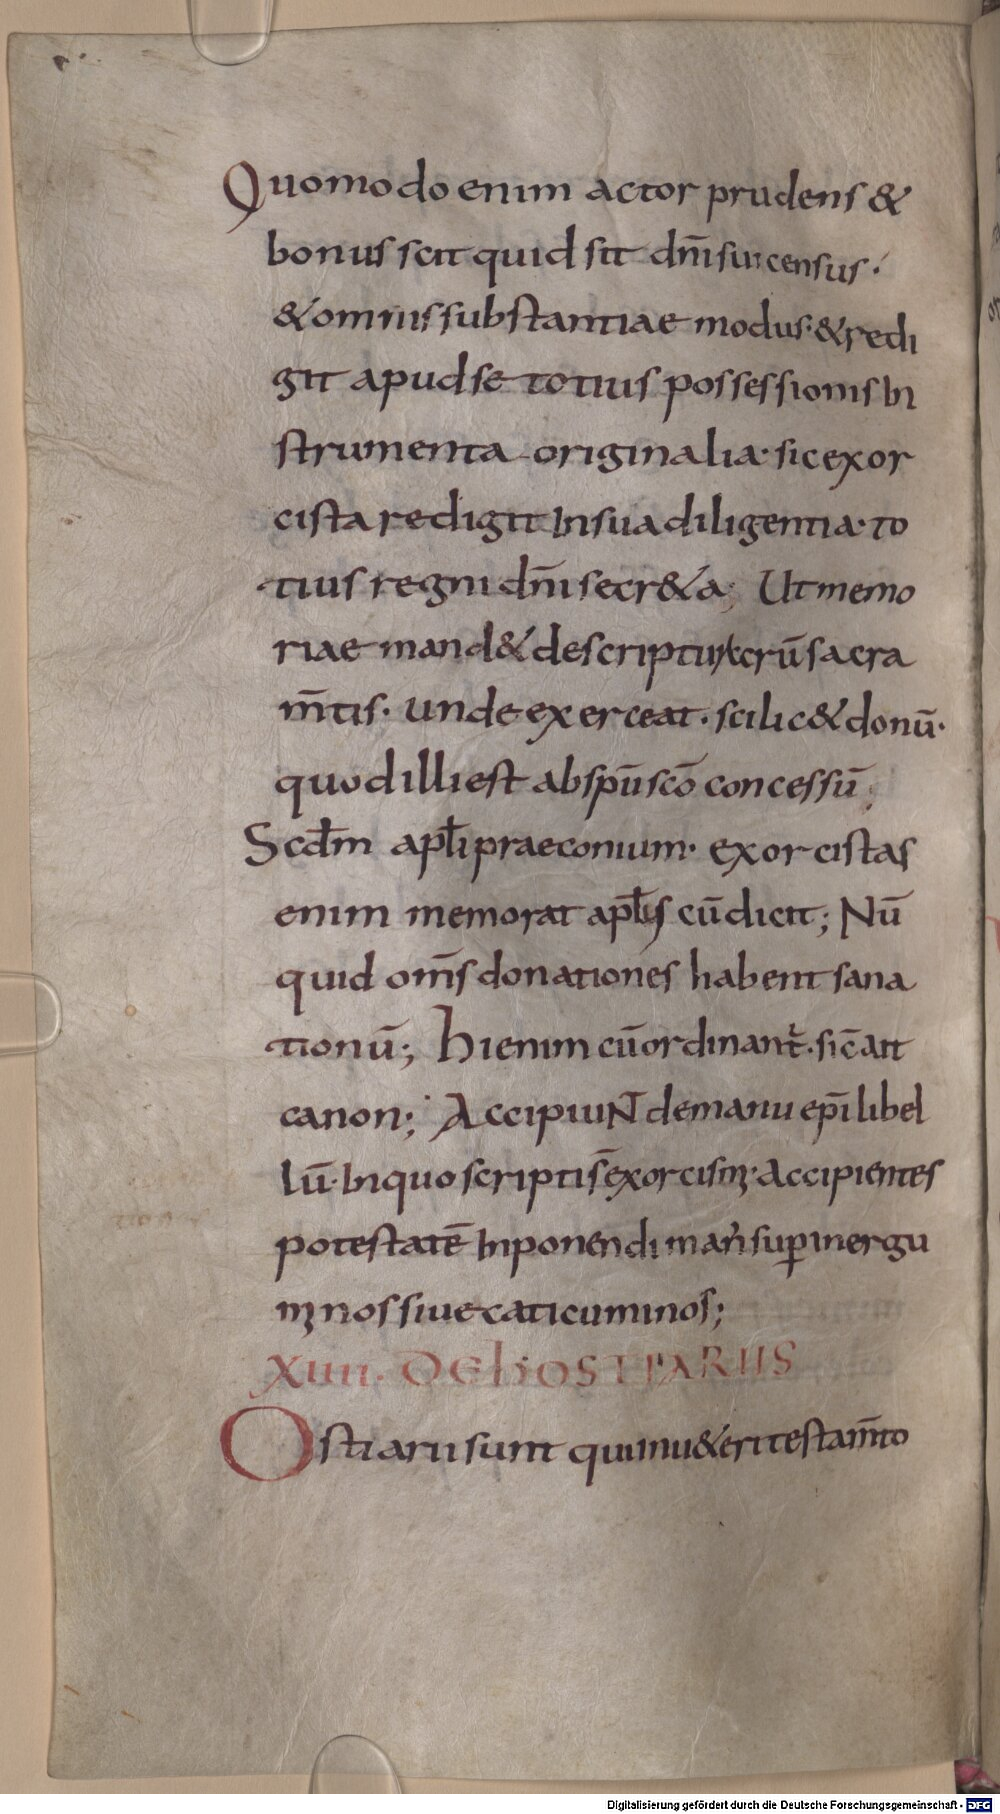 Quomodo enim actor prudens &
bonus scit quid sit dn̄i sui census·
& omnis substantiae modus· & redi
git apud se totius possessionis in
strumenta originalia· sic exor
cista redigit in sua diligentia· to
tius regni dn̄i secr&a; Ut memo
riae mand& de scripturis crū sacra
m̄tis· unde exerceat· scilic& donū·
quod illi est ab spū scō concessū;
Scdm̄ apłi praeconium· exorcistas
enim memorat apłs cū dicit; Nū
quid om̄s donationes habent sana
tionū; Hi enim cū ordinant̄· sic̄ ait
canon; Accipiunt de manu ep̄i libel
lū· in quo scripti s̄ exorcism̄· Accipientes
potestatē inponendi man̄ sup̄ inergu
m̄nos siue caticuminos;
XIIII. DE HOSTIARIIS
Ostiarii sunt qui in u&eri testam̄to
Digitalisierung gefördert durch die Deutsche Forschungsgemeinschaft - DFG